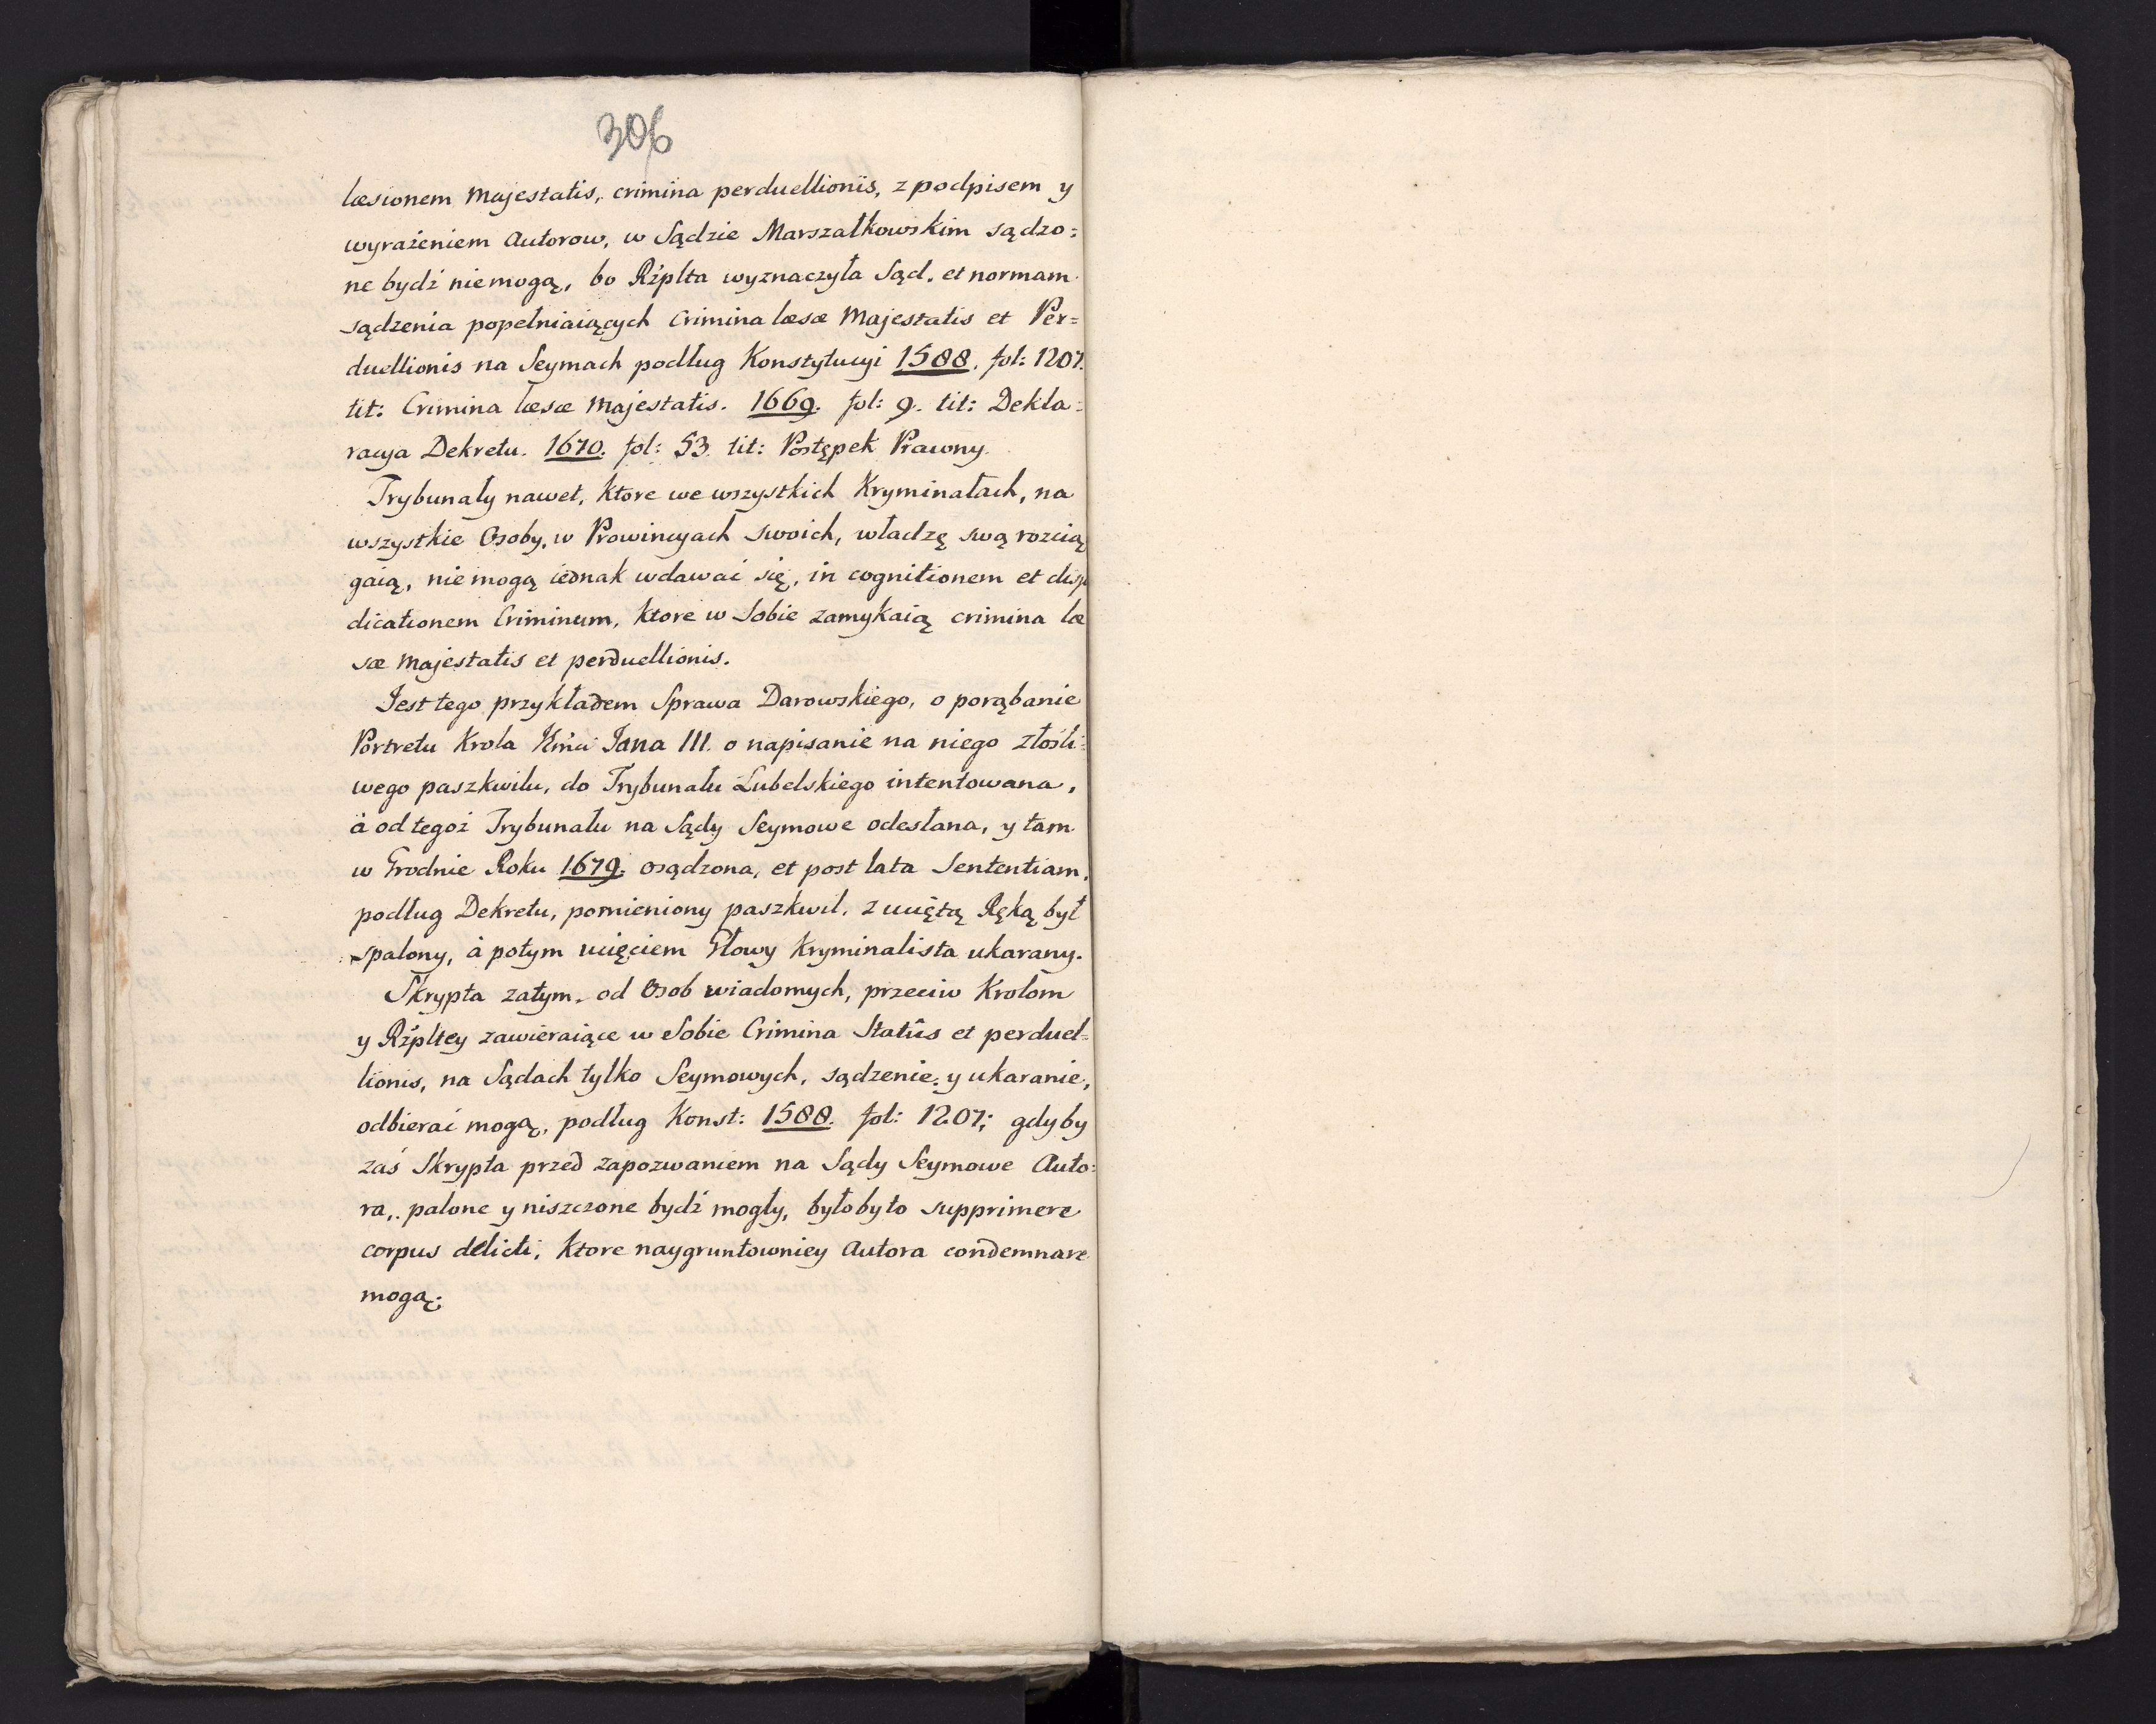 306
læsionem Majestatis, crimina perduellionis, z podpisem y
wyrażeniem Autorow, w Sądzie Marszałkowskim sądzo=
ne bydź niemogą, bo Rżplta wyznaczyła Sąd, et normam
sądzenia popełniaiących Crimina læsæ Majestatis et Per=
duellionis na Seymach podług Konstytucyi 1588. fol: 1207.
tit: Crimina læsæ Majestatis. 1669. fol: 9. tit: Dekla=
racya Dekretu. 1670. fol: 53. tit: Postępek Prawny.
Trybunały nawet, ktore we wszystkich Kryminałach, na
wszystkie Osoby, w Prowincyach swoich, władzę swą rozcią
gaią, nie mogą iednak wdawać się, in cognitionem et diju
dicationem Criminum, ktore w Sobie zamykaią crimina læ
sæ Majestatis et perduellionis.
Jest tego przykładem Sprawa Darowskiego, o porąbanie
Portretu Krola Jmći Jana III. o napisanie na niego złośli=
wego paszkwilu, do Trybunału Lubelskiego intentowana,
à od tegoż Trybunału na Sądy Seymowe odesłana, y tam
w Grodnie Roku 1679. osądzona, et post lata Sententiam,
podług Dekretu, pomieniony paszkwil, z uciętą Ręką był
spalony, à potym ucięciem Głowy Kryminalista ukarany.
Skrypta zatym, od Osob wiadomych, przeciw Krolom
y Rżpltey zawieraiące w Sobie Crimina Statûs et perduel=
lionis, na Sądach tylko Seymowych, sądzenie, y ukaranie,
odbierać mogą, podług Konst: 1588. fol: 1207; gdyby
zaś Skrypta przed zapozwaniem na Sądy Seymowe Auto=
ra, palone y niszczone bydź mogły, byłoby to supprimere
corpus delicti, ktore naygruntowniey Autora condemnare
mogą.